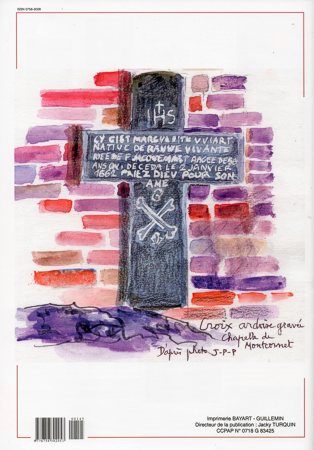 ISSN 0758-900X
IHS
CY GIST MARGVERITE VVIART
NATIVE DE VIVANTE
AAGEE DE 58
ANS QVI DECEDA LE 2 JANVIER
1662 PRIEZ DIEV POVR SON
AME
Croix ardoise gravée
Chapelle de
Montcornet
D'après photo J-P-P
Imprimerie BAYART - GUILLEMIN
Directeur de la publication : Jacky TURQUIN
CCPAP N° 0718 G 83425